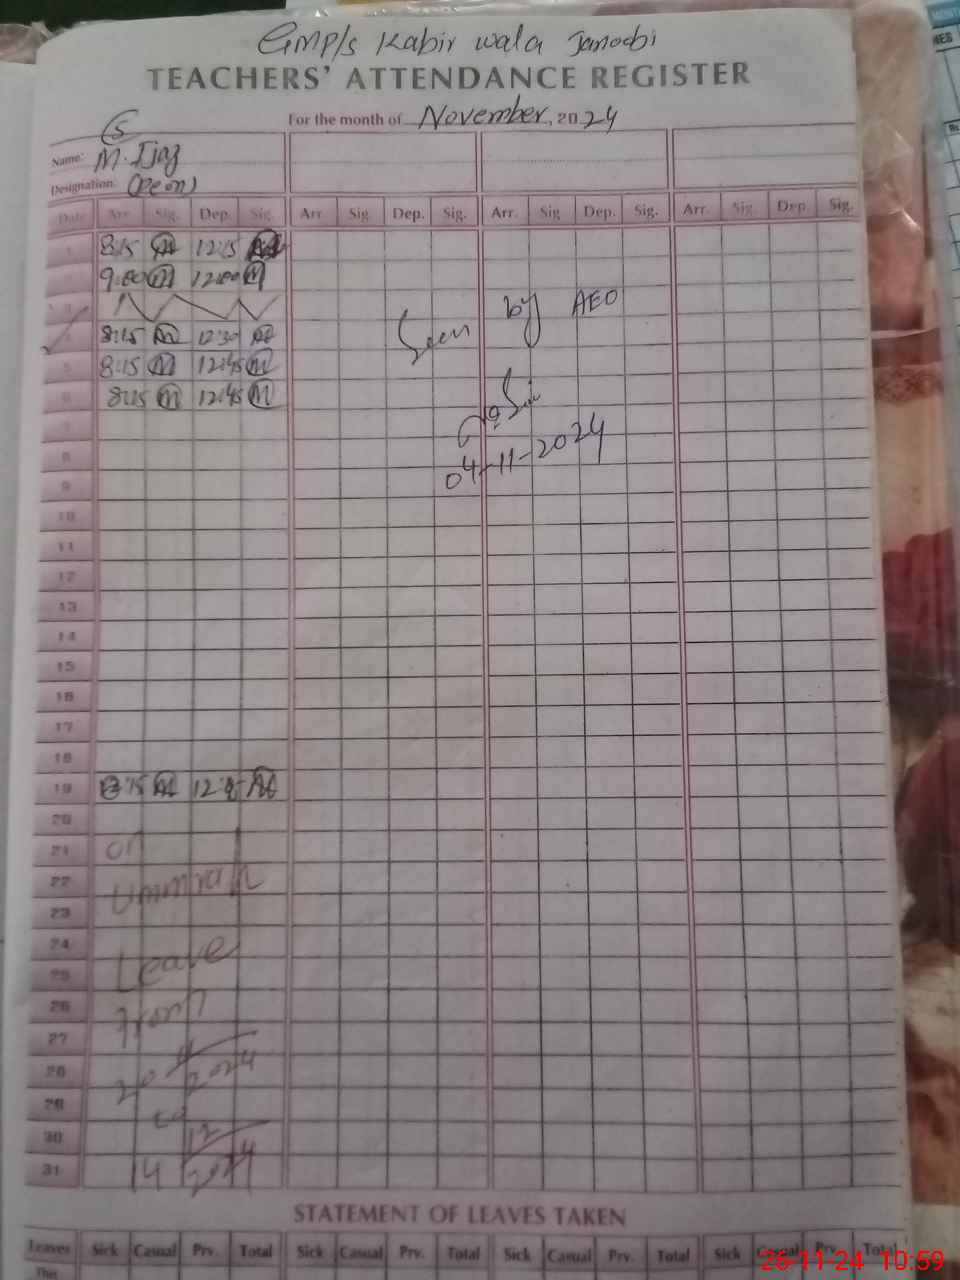 GMP/s Kabir wala Janoobi
TEACHERS' ATTENDANCE REGISTER
For the month of November, 2024
5
Name: M. Ijaz
Designation: (Peon)
Date Arr. Sig. Dep. Sig. Arr. Sig. Dep. Sig. Arr. Sig. Dep. Sig. Arr. Sig. Dep. Sig.
1 8:15 12:15
9:00 M 12:00 M
3
4 8:15 12:30
5 8:15 M 12:45 M
6 8:15 M 12:45 M
Seen by AEO
04-11-2024
7
8
9
10
11
12
13
14
15
16
17
18
19 8:15 12:
20
21 on
22 Ummrah
23
24 Leave
25
26 from
27
28 20 11/2024
29 to
30 12
31 14 /2024
STATEMENT OF LEAVES TAKEN
Leaves Sick Casual Prv. Total Sick Casual Prv. Total Sick Casual Prv. Total Sick Casual Prv. Total
This
26-11-24 10:59